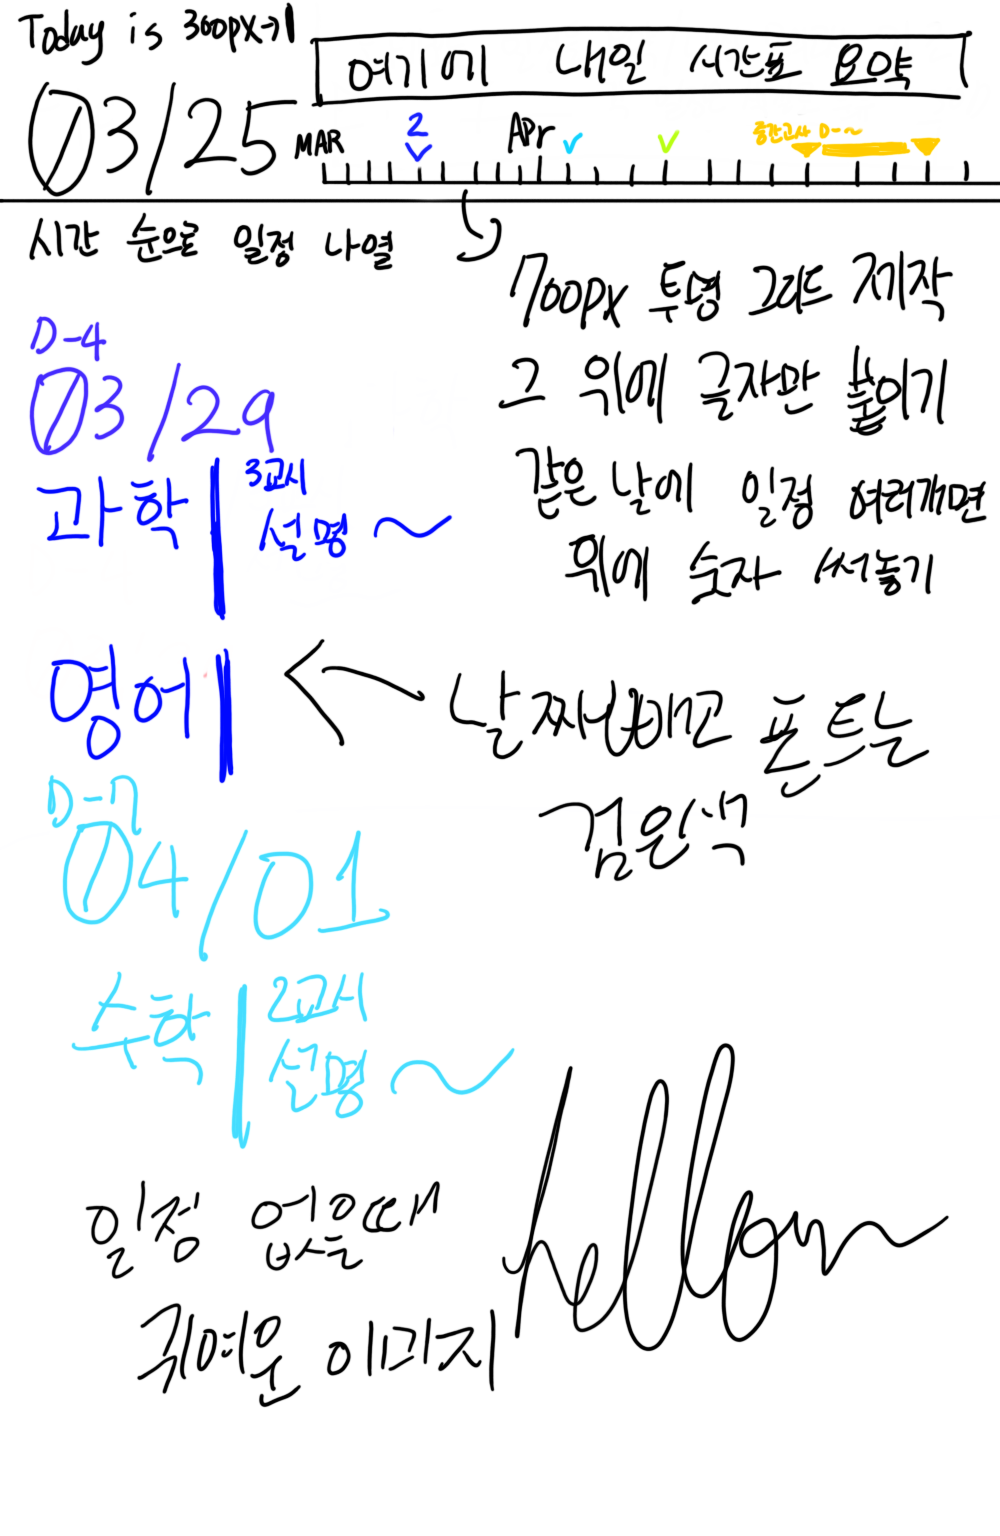 Today is 300px크기
03/25
여기에 내일 시간표 요약
MAR 2 Apr 중간고사 D-~
시간 순으로 일정 나열
700px 투명 그리드 제작
그 위에 글자만 붙이기
같은 날에 일정 여러개면
위에 숫자 써놓기
D-4
03/29
과학 3교시
설명 ~
영어
날짜빼고 폰트는
검은색
D-7
04/01
수학 2교시
설명 ~
일정 없을때
귀여운 이미지